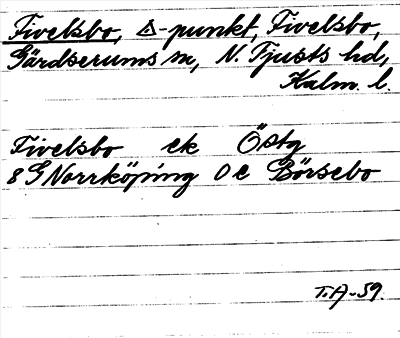 Fivelsbo, △-punkt, Fivelsbo,
Gärdserums sn, N. Tjusts hd,
Kalm. l.
Fivelsbo ek Östg
8 G Norrköping 0 e Börsebo
T.A-59.